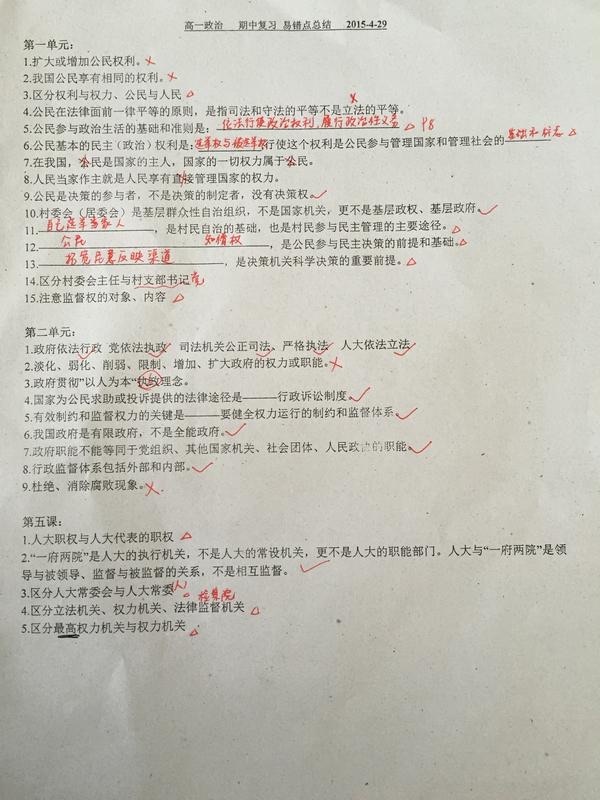 高一政治 期中复习 易错点总结 2015-4-29
第一单元：
1.扩大或增加公民权利。×
2.我国公民享有相同的权利。×
3.区分权利与权力、公民与人民 △
4.公民在法律面前一律平等的原则，是指司法和守法的平等不是立法的平等。×
5.公民参与政治生活的基础和准则是：依法行使政治权利，履行政治性义务 △ P8
6.公民基本的民主（政治）权利是：选举权与被选举权行使这个权利是公民参与管理国家和管理社会的基础和标志 △
7.在我国，公民是国家的主人，国家的一切权力属于公民。
8.人民当家作主就是人民享有直接管理国家的权力。
9.公民是决策的参与者，不是决策的制定者，没有决策权。✓
10.村委会（居委会）是基层群众性自治组织，不是国家机关，更不是基层政权、基层政府。✓
11.自己选举当家人，是村民自治的基础，也是村民参与民主管理的主要途径。△
12.公民 知情权，是公民参与民主决策的前提和基础。△
13.拓宽民意反映渠道，是决策机关科学决策的重要前提。△
14.区分村委会主任与村支部书记 党
15.注意监督权的对象、内容 △
第二单元：
1.政府依法行政 党依法执政 司法机关公正司法、严格执法 人大依法立法
2.淡化、弱化、削弱、限制、增加、扩大政府的权力或职能。×
3.政府贯彻"以人为本"执政理念。
4.国家为公民求助或投诉提供的法律途径是———行政诉讼制度。✓
5.有效制约和监督权力的关键是———要健全权力运行的制约和监督体系。✓
6.我国政府是有限政府，不是全能政府。✓
7.政府职能不能等同于党组织、其他国家机关、社会团体、人民政协的职能。✓
8.行政监督体系包括外部和内部。✓
9.杜绝、消除腐败现象。×
第五课：
1.人大职权与人大代表的职权 △
2."一府两院"是人大的执行机关，不是人大的常设机关，更不是人大的职能部门。人大与"一府两院"是领
导与被领导、监督与被监督的关系，不是相互监督。✓
3.区分人大常委会与人大常委(人) △
4.区分立法机关、权力机关、法律监督机关 检察院 △
5.区分最高权力机关与权力机关 △